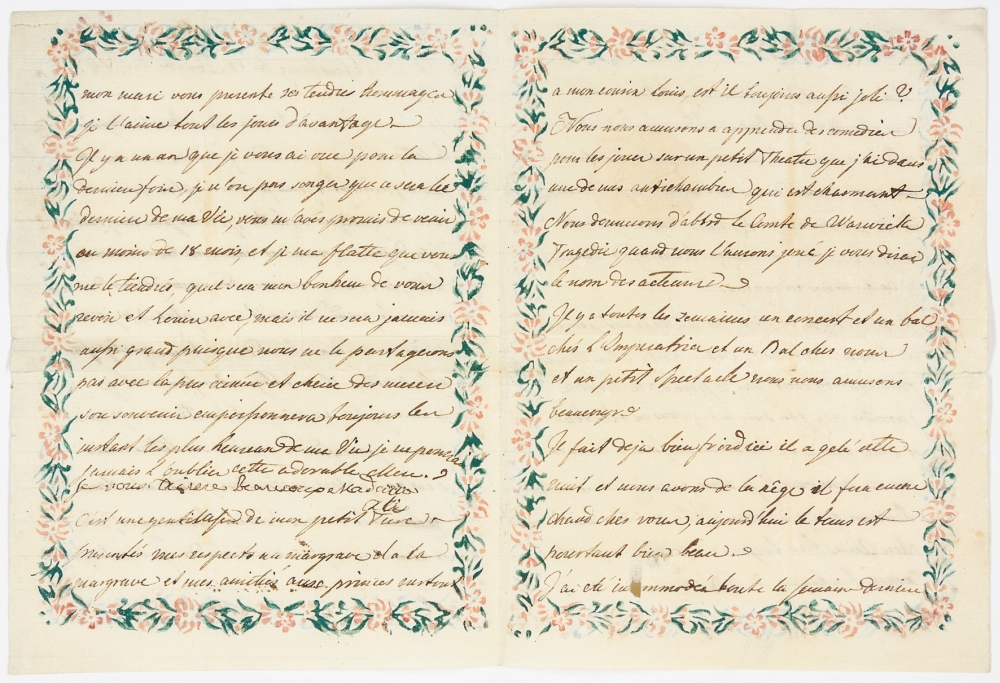 mon mari vous presente ses tendres hommages
je l'aime tout les jours d'avantage
Il y a un an que je vous ai vue pour la
derniere fois, je n'ose pas songer que ce sera la
derniere de ma Vie, vous m'avés promis de venir
au moins de 18 mois, et je me flatte que vous
me le tiendrés, quel sera mon bonheur de vous
revoir et Louise avec, mais il ne sera jamais
aussi grand puisque nous ne le partagerons
pas avec la plus aimée et cherie des meres
son souvenir empoisonnera toujours les
instant les plus heureux de ma Vie je ne pourai
jamais l'oublier cette adorable Mere.
je vous aime beaucoup
c'est une gentillesse de mon petit
presentés mes respects au margrave et a la
margrave et mes amitiés aux princes surtout
a mon cousin Louis, est il toujours aussi joli ?
Nous nous amusons a apprendre des comedies
pour les jouer sur un petit Theatre que j'ai dans
une de mes antichambres qui est charmant
Nous donnerons d'abord le Comte de Warwick
Tragedie quand nous l'aurons joué je vous dirai
le nom des acteurs
Il y a toutes les semaines un concert et un bal
chés L'Imperatrice et un Bal ches nous
et un petit Spectacle nous nous amusons
beaucoup
Il fait deja bien froid ici il a gelé cette
nuit et nous avons de la nêge il fera encore
chaud ches vous, aujourd'hui le tems est
pourtant bien beau
J'ai eté incommodée toute la semaine derniere